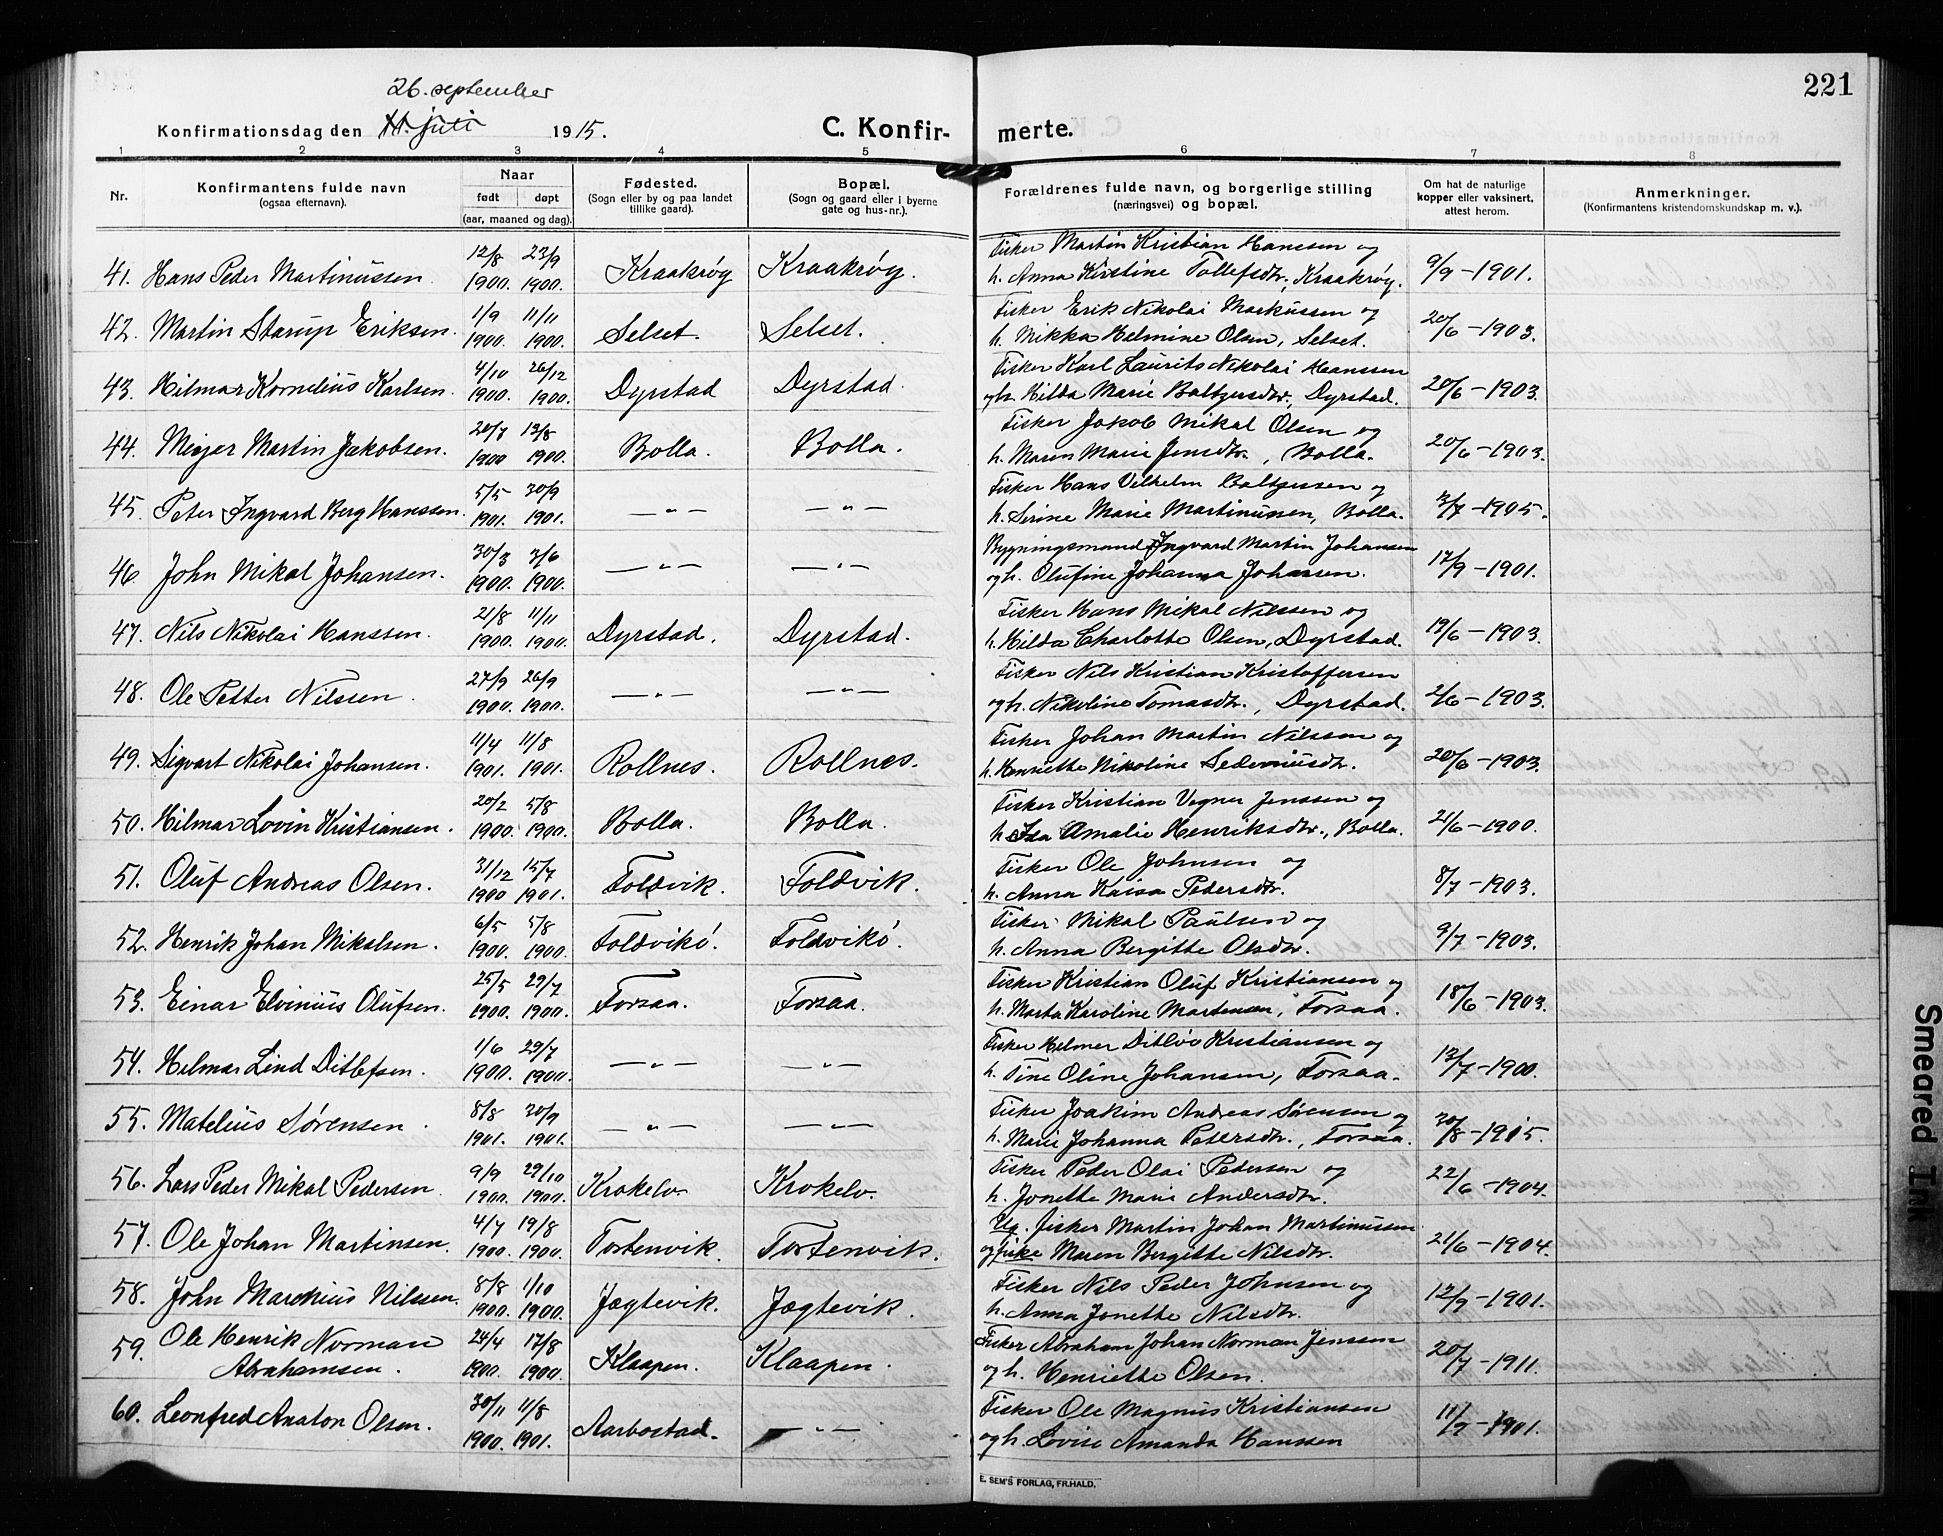 221
26. september
Konfirmationsdag den 11. juli 1915. C. Konfir- merte.
1 2 3 4 5 6 7 8
Nr. Konfirmantens fulde navn (ogsaa efternavn). Naar født døpt (aar, maaned og dag). Fødested. (Sogn eller by og paa landet tillike gaard). Bopæl. (Sogn og gaard eller i byerne gate og hus-nr.). Forældrenes fulde navn, og borgerlige stilling (næringsvei) og bopæl. Om hat de naturlige kopper eller vaksinert, attest herom. Anmerkninger. (Konfirmantens kristendomskundskap m. v.).
12/8 23/9 Fisker Martin Kristian Hanssen og
41. Hans Peder Martinussen. 1900. 1900. Kraakrøg Kraakrøy. h. Anna Kirstine Tollefsdtr., Kraakrøy. 9/9-1901.
1/9 11/11 Fisker Erik Nikolai Markussen og
42. Martin Starup Eriksen. 1900. 1900. Selset. Selset. h. Mikka Helmine Olsen, Selset. 20/6-1903.
4/10 26/12 Fisker Karl Laurits Nikolai Hanssen
43. Hilmar Kornelius Karlsen. 1900. 1900. Dyrstad Dyrstad. og h. Hilda Marie Baltzersdtr., Dyrstad. 20/6-1903.
20/7 13/8 Fisker Jakob Mikal Olsen og
44. Meyer Martin Jakobsen. 1900 1900. Bolla. Bolla. h. Maren Marie Jensdtr., Bolla. 20/6-1903.
5/5 30/9 Fisker Hans Vilhelm Baltzersen og
45. Peter Ingvard Berg Hanssen. 1901. 1901. —"— —"— h. Serine Marie Martinussen, Bolla. 3/7-1905.
30/3 3/6 Bygningsmand Ingvard Martin Johansen
46. John Mikal Johansen. 1900. 1900. —"— —"— og h. Olufine Johanna Johansen. 17/9-1901.
21/8 11/11 Fisker Hans Mikal Nilssen og
47. Nils Nikolai Hanssen. 1900. 1900. Dyrstad. Dyrstad. h. Hilda Charlotte Olsen, Dyrstad. 19/6-1903.
27/9 26/9 Fisker Nils Kristian Kristoffersen
48. Ole Petter Nilssen. 1900. 1900. —"— —"— og h. Nikoline Tomasdtr., Dyrstad. 2/6-1903.
11/4 11/8 Fisker Johan Martin Nilssen og
49. Sigvart Nikolai Johansen. 1901. 1901. Rollnes. Rollnes. h. Henriette Nikoline Sedeniusdtr. 20/6-1903.
20/2 5/8 Fisker Kristian Vogner Jenssen og
50. Hilmar Lovin Kristiansen. 1900. 1900. Bolla. Bolla. h. Isa Amalie Henriksdtr., Bolla. 21/6-1900.
31/12 15/7 Fisker Ole Johnsen og
51. Oluf Andreas Olsen. 1900 1901. Foldvik. Foldvik. h. Anna Kaisa Pedersdtr. 8/7-1903.
6/5 5/8 Fisker Mikal Paulsen og
52. Henrik Johan Mikalsen. 1900. 1900. Foldvikø. Foldvikø. h. Anna Bergitte Olsdtr. 9/7-1903.
25/5 29/7 Fisker Kristian Oluf Kristiansen og
53. Einar Elvinius Olufsen. 1900. 1900. Forsaa. Forsaa. h. Marta Karoline Martensen, Forsaa. 18/6-1903.
1/6 29/7 Fisker Helmer Ditløv Kristiansen og
54. Helmar Lind Ditlefsen. 1900. 1900. —"— —"— h. Tine Oline Johansen, Forsaa. 13/7-1900.
8/8 30/9 Fisker Joakim Andreas Sørensen og
55. Matelius Sørensen. 1901. 1901. —"— —"— h. Marie Johanna Petersdtr., Forsaa. 30/8-1915.
9/9 29/10 Fisker Peder Olai Pedersen og
56. Lars Peder Mikal Pedersen. 1900. 1900. Krokelv. Krokelv. h. Jonette Marie Andersdtr. 22/6-1904.
4/7 19/8 Ug. fisker Martin Johan Martinussen
57. Ole Johan Martinsen. 1900. 1900. Tortenvik. Tortenvik. og pike Maren Bergitte Nilsdtr. 21/6-1904.
8/8 1/10 Fisker Nils Peder Johnsen og
58. John Marchius Nilssen. 1900. 1900. Jægtevik. Jægtevik. h. Anna Jonette Nilsdtr. 12/9-1901.
Ole Henrik Norman 24/4 17/8 Fisker Abraham Johan Norman Jenssen
59. Abrahamsen. 1900. 1900. Klaapen. Klaapen. og h. Henriette Olsen. 20/7-1911.
30/11 11/8 Fisker Ole Magnus Kristiansen
60. Leonfred Anaton Olsen. 1900. 1901. Aarbostad. —"— og h. Lovise Amanda Hanssen 11/7-1901.
E. SEM'S FORLAG, FR.HALD.
Smeared Ink